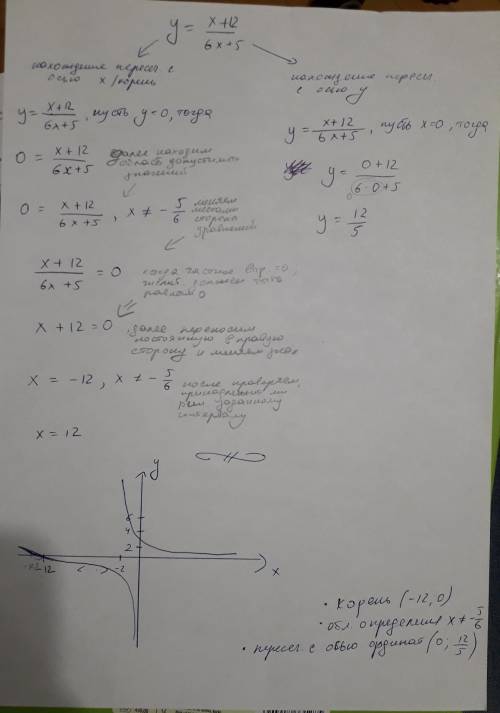 y = x+12 / 6x+5
нахождение пересеч. с
осью x /корень
y = x+12 / 6x+5 , пусть y=0, тогда
0 = x+12 / 6x+5
далее находим
область допустимых
значений
0 = x+12 / 6x+5 , x ≠ - 5/6
меняем
местами
стороны
уравнения
x+12 / 6x+5 = 0
когда частное выр. =0,
числит. должен быть
равным 0
x + 12 = 0
, далее переносим
постоянную в правую
сторону и меняем знак
x = -12 , x ≠ - 5/6
после проверяем,
заданному
интервалу
x = 12
нахождение пересеч.
с осью y
y = x+12 / 6x+5 , пусть x=0, тогда
y = 0+12 / 6·0+5
y = 12/5
y
6
4
2
-12
-2
x
• корень (-12, 0)
• обл. определения x ≠ - 5/6
• пересеч с осью ординат (0; 12/5)